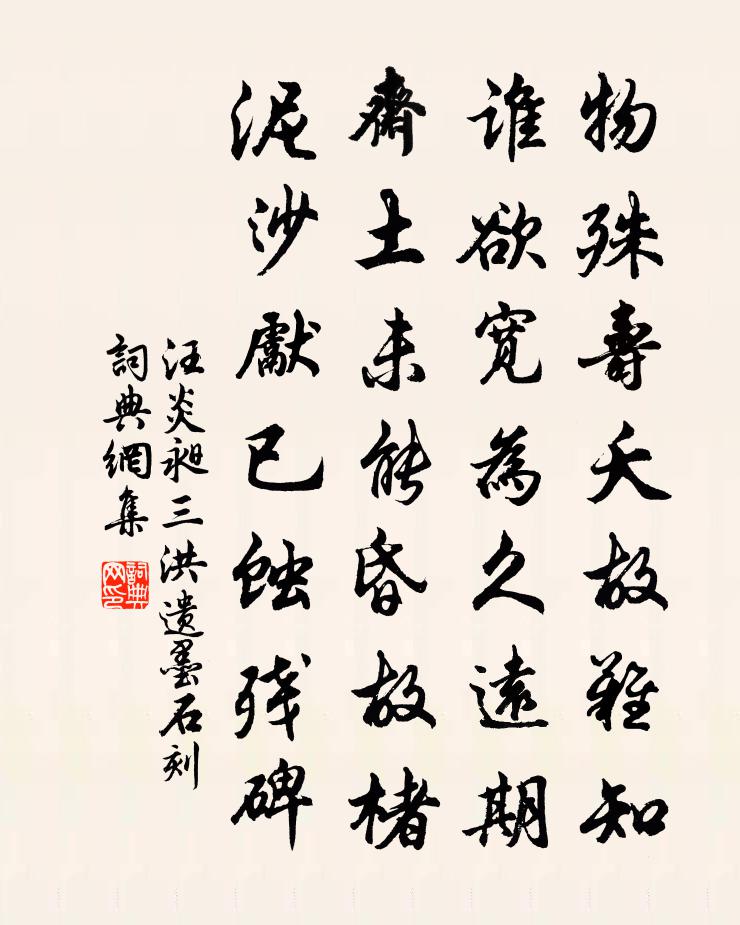 物殊壽夭故難知
誰欲寬為久遠期
齋土未能昏故楮
泥沙厭已蝕殘碑
汪炎昶三洪遺墨石刻
詞典網集
詞典网印